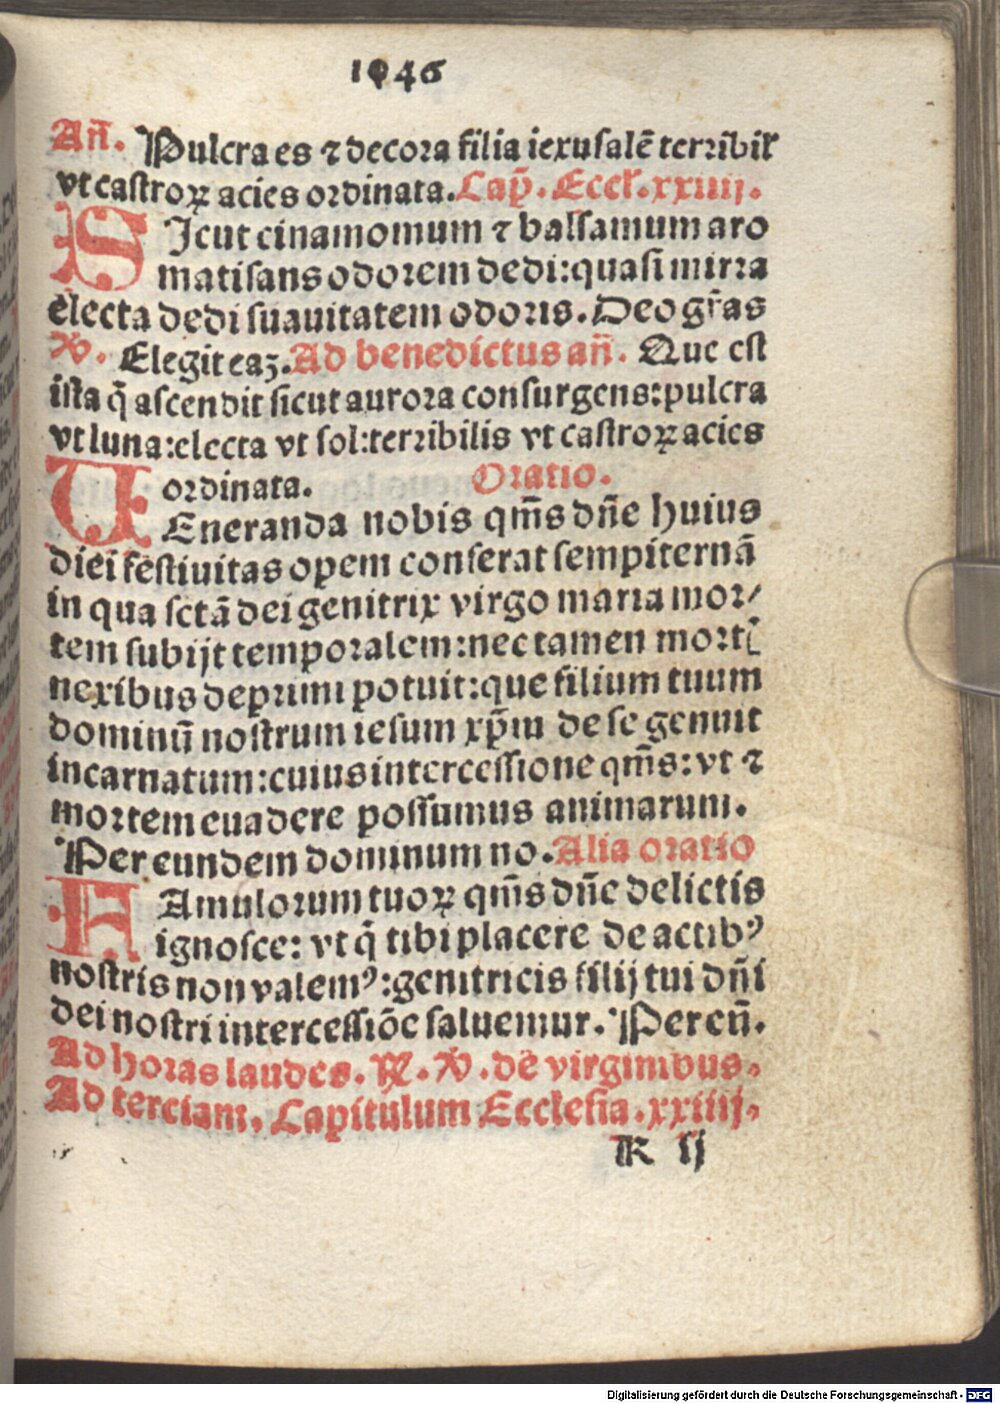 1046
Añ. Pulcra es ⁊ decora filia iexusalē terribil̛
vt castroꝝ acies ordinata. Cap̄. Eccl̛. xxiiij.
SIcut cinamomum ⁊ balsamum aro
matisans odorem dedi: quasi mirra
electa dedi suauitatem odoris. Deo gr̄as
℣. Elegit eaȝ. Ad benedictus añ. Que est
ista q̄ ascendit sicut aurora consurgens: pulcra
vt luna: electa vt sol: terribilis vt castroꝝ acies
ordinata. Oratio.
VEneranda nobis qm̄s dn̄e huius
diei festiuitas opem conferat sempiternā
in qua sctā dei genitrix virgo maria mor/
tem subijt temporalem: nec tamen morti
nexibus deprimi potuit: que filium tuum
dominū nostrum iesum xp̄m de se genuit
incarnatum: cuius intercessione qm̄s: vt ⁊
mortem euadere possumus animarum.
Per eundem dominum no. Alia oratio
FAmulorum tuoꝝ qm̄s dn̄e delictis
ignosce: vt q̄ tibi placere de actibꝰ
nostris non valemꝰ: genitricis filij tui dn̄i
dei nostri intercessiōe saluemur. Per eū.
Ad horas laudes. ℟. ℣. de virginibus.
Ad terciam, Capitulum Ecclesia. xxiiij.
K ij
Digitalisierung gefördert durch die Deutsche Forschungsgemeinschaft - DFG